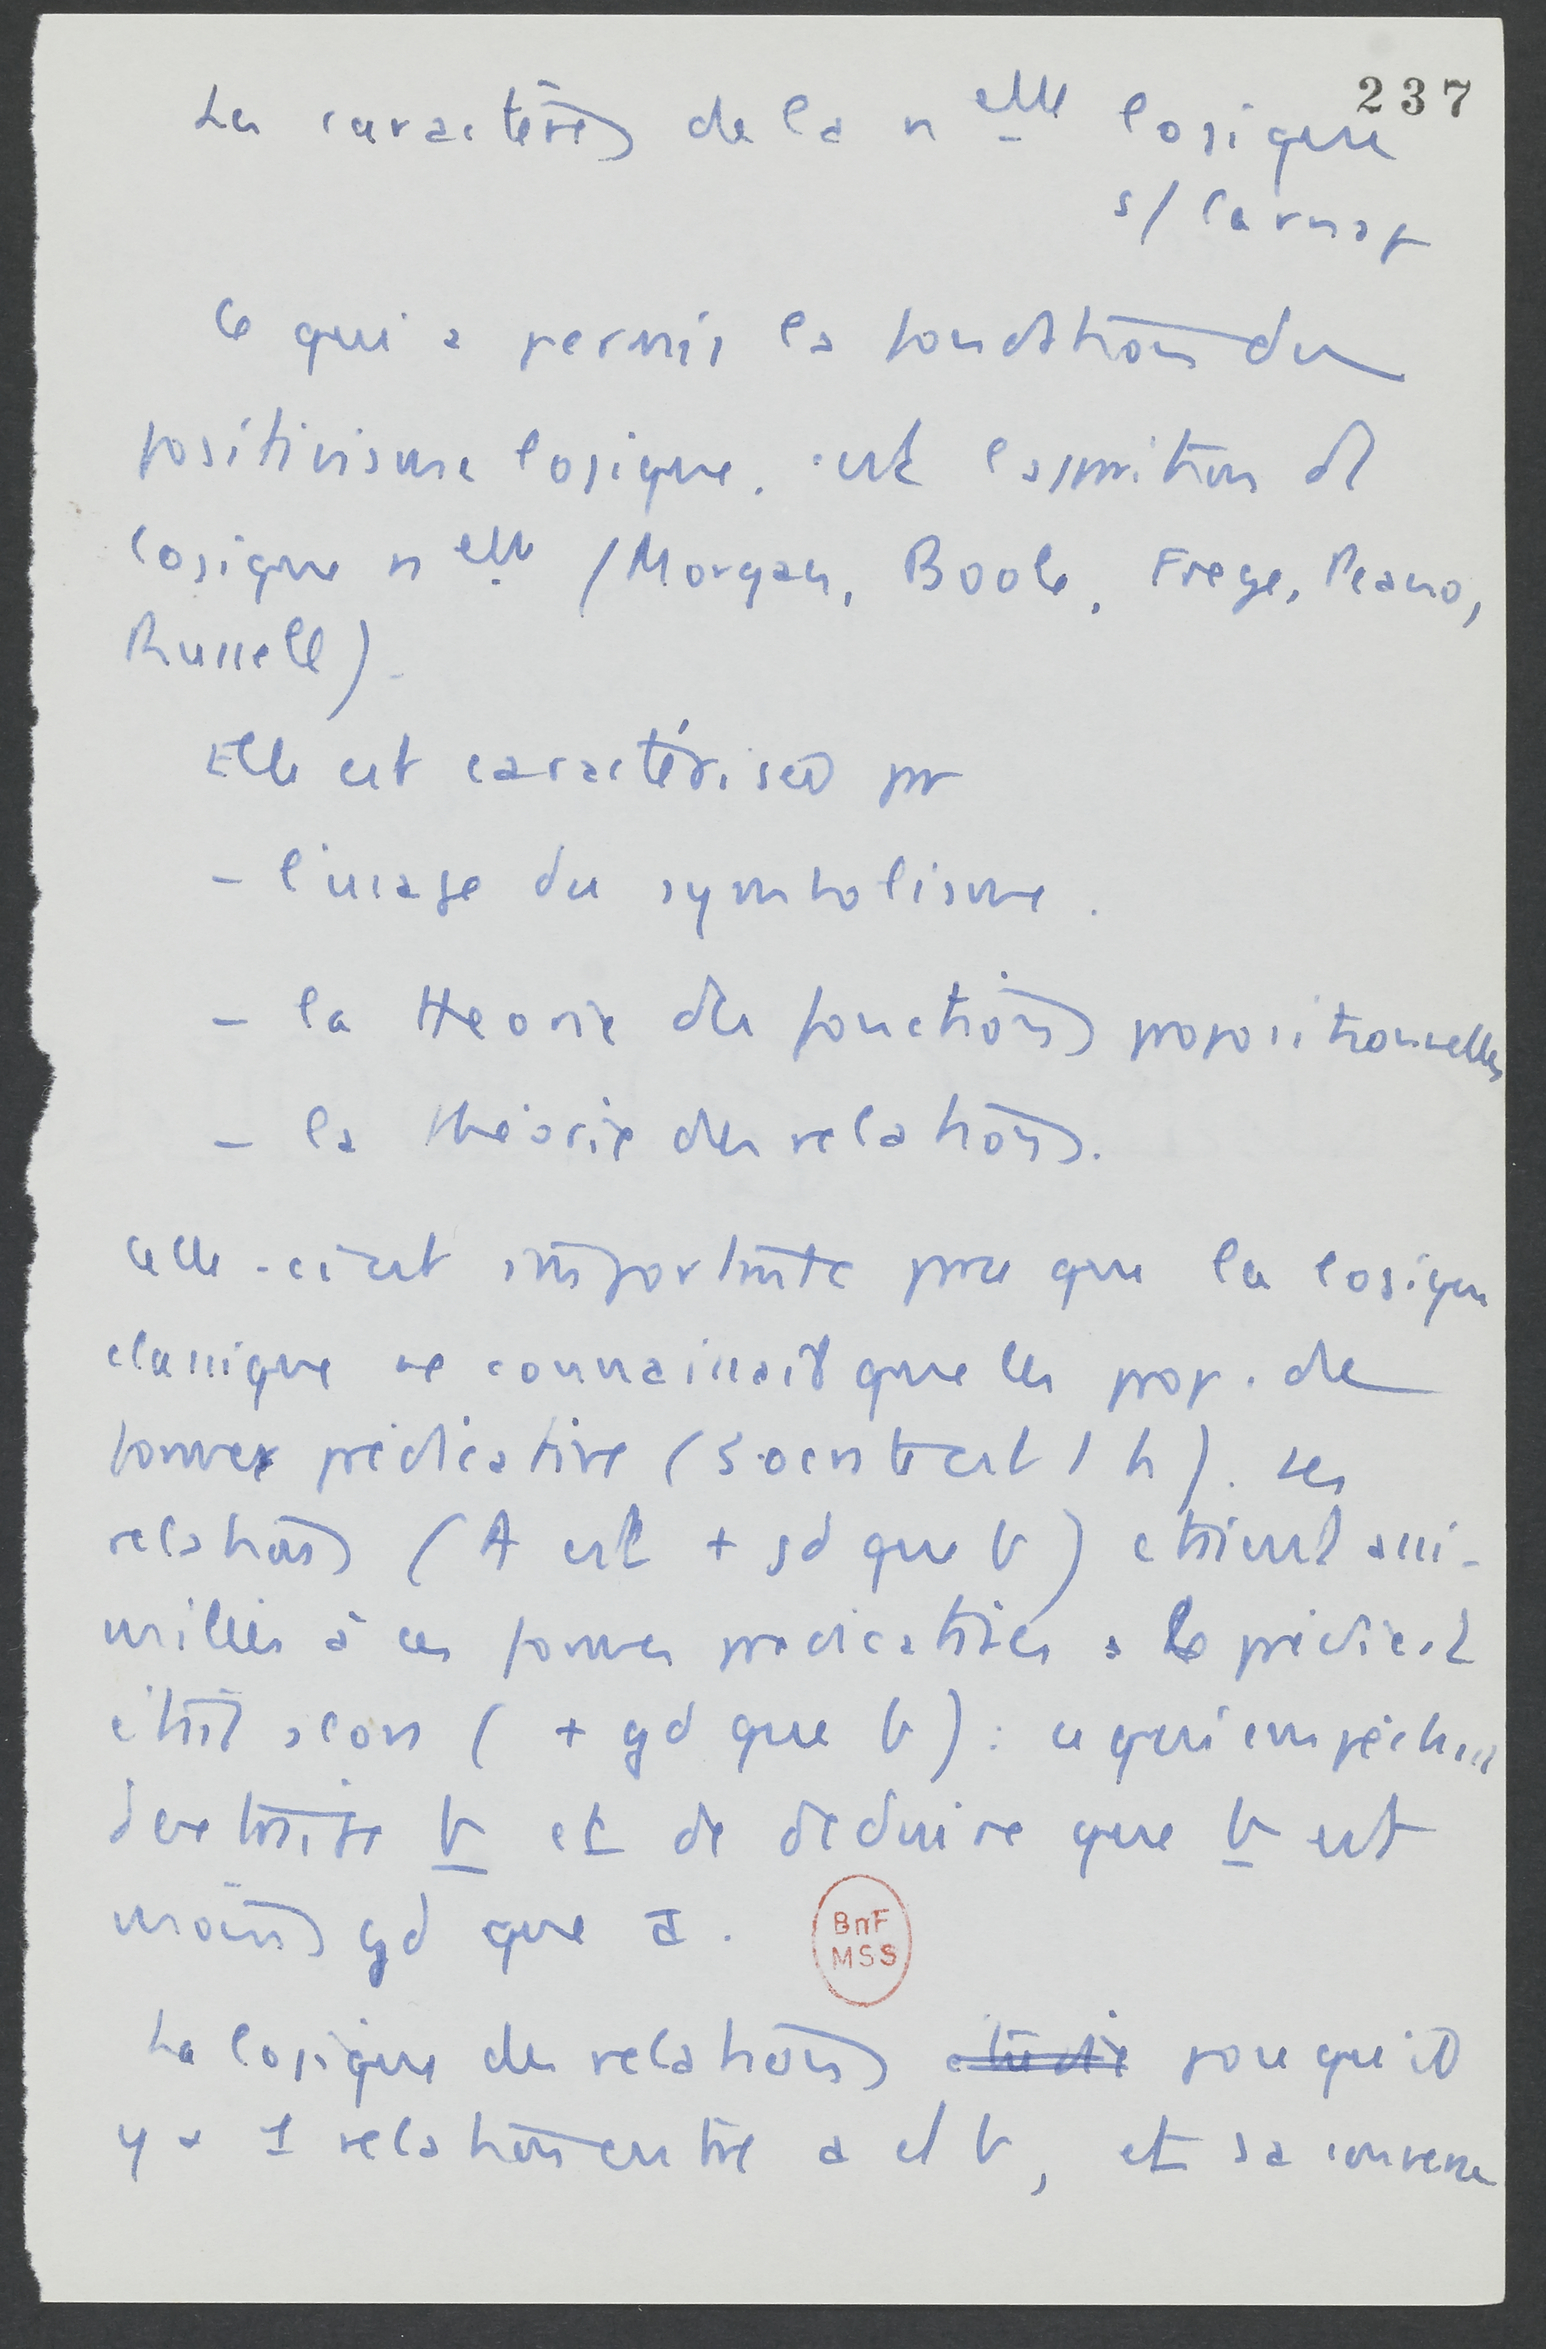 237
Les caractères de la nelle logique
s/ Carnap
Ce qui a permis la fondation du
positivisme logique. est l'apparition de
logique nelle (Morgan, Boole, Frege, Peano,
Russell).
Elle est caractérisée par
- l'usage du symbolisme.
- la théorie des fonctions propositionnelles
- la théorie des relations.
Celle-ci est importante parce que la logique
classique ne connaissait que les prop. de
forme prédicative (Socrate est 1 h). Les
relations (A est + gd que b) étaient assi-
milées à ces formes prédicatives : le prédicat
était alors ( + gd que b) : ce qui empêchait
d'extraire b et de déduire que b est
moins gd que a.
BnF
MSS
La logique des relations étudie pose qu'il
y a 1 relation entre a et b, et sa converse